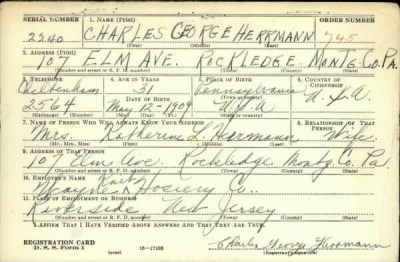 SERIAL NUMBER 1. NAME (Print) ORDER NUMBER
2240 CHARLES GEORGE HERRMANN 745
(First) (Middle) (Last)
2. ADDRESS (Print)
107 ELM AVE. ROCKLEDGE MONTG. CO. PA.
(Number and street or R. F. D. number) (Town) (County) (State)
3. TELEPHONE 4. AGE IN YEARS 5. PLACE OF BIRTH 6. COUNTRY OF CITIZENSHIP
Cheltenham 31 Pennsylvania
2564 DATE OF BIRTH U.S.A.
May 12-1909 U.S.A
(Exchange) (Number) (Mo.) (Day) (Yr.) (State or country)
7. NAME OF PERSON WHO WILL ALWAYS KNOW YOUR ADDRESS 8. RELATIONSHIP OF THAT PERSON
Mrs. Katherine L. Herrmann Wife
(Mr., Mrs., Miss) (First) (Middle) (Last)
9. ADDRESS OF THAT PERSON
107 Elm Ave. Rockledge Montg Co. Pa.
(Number and street or R. F. D. number) (Town) (County) (State)
10. EMPLOYER'S NAME
Wayne Knit Hosiery Co.
11. PLACE OF EMPLOYMENT OR BUSINESS
Riverside New Jersey
(Number and street or R. F. D. number) (Town) (County) (State)
I AFFIRM THAT I HAVE VERIFIED ABOVE ANSWERS AND THAT THEY ARE TRUE.
REGISTRATION CARD
D. S. S. Form 1 (over) 16-17105 Charles George Herrmann
(Registrant's signature)